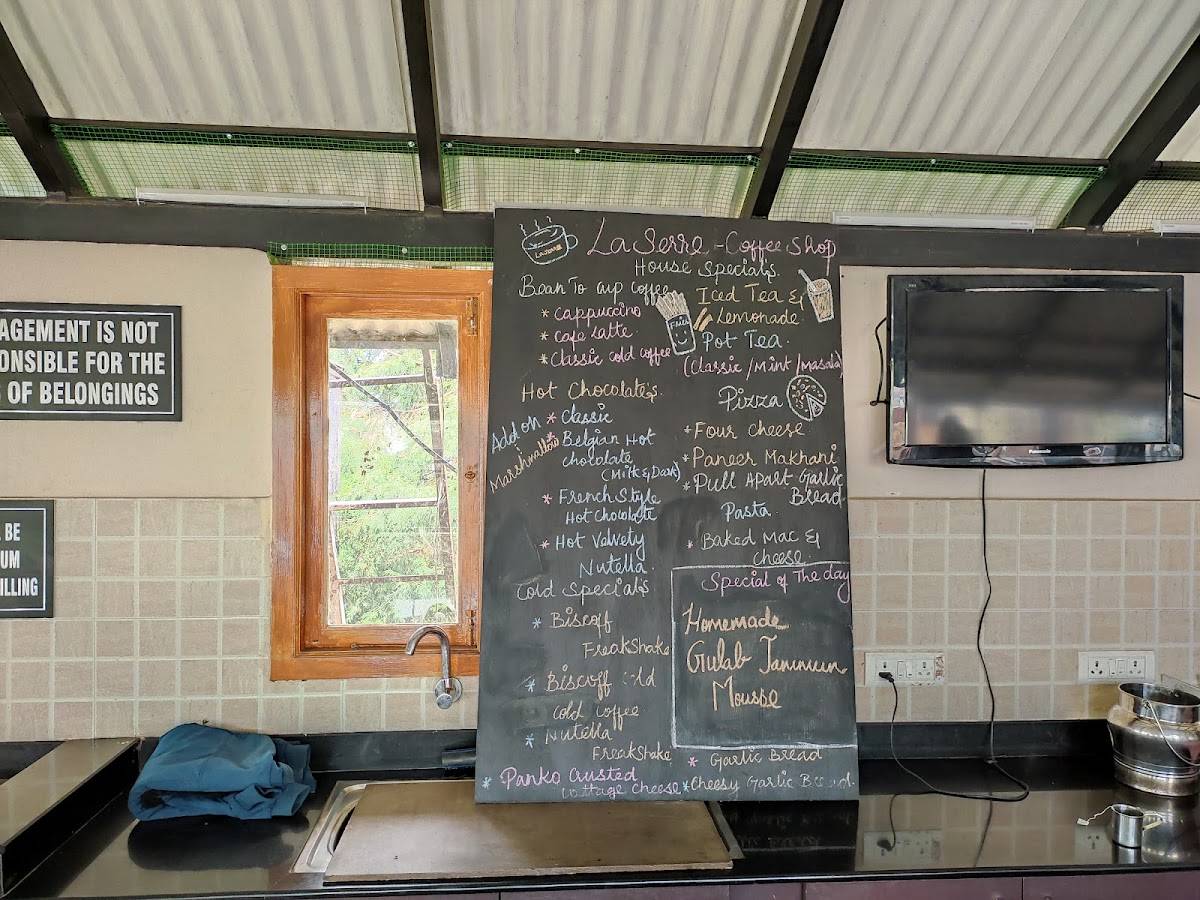 AGEMENT IS NOT
ONSIBLE FOR THE
OF BELONGINGS
BE
UM
ILLING
La Serre - Coffee Shop
House Specials.
Bean To cup coffee
* cappuccino
* cafe latte
* classic cold coffee
Hot Chocolates.
Add on
Marshmallow
* Classic
* Belgian Hot
chocolate
(Milk & Dark)
* French Style
Hot Chocolate
* Hot Velvety
Nutella
Cold Specials
* Biscoff
FreakShake
* Biscoff
cold coffee
* Nutella
FreakShake
* Panko Crusted
cottage cheese
Fries
Iced Tea &
Lemonade
Pot Tea
(Classic / Mint / Masala)
Pizza
* Four cheese
* Paneer Makhani
* Pull Apart Garlic
Bread
Pasta
* Baked Mac &
Cheese
Special of The day
Homemade
Gulab Jammum
Mousse
* Garlic Bread
* Cheesy Garlic Bread
Panasonic